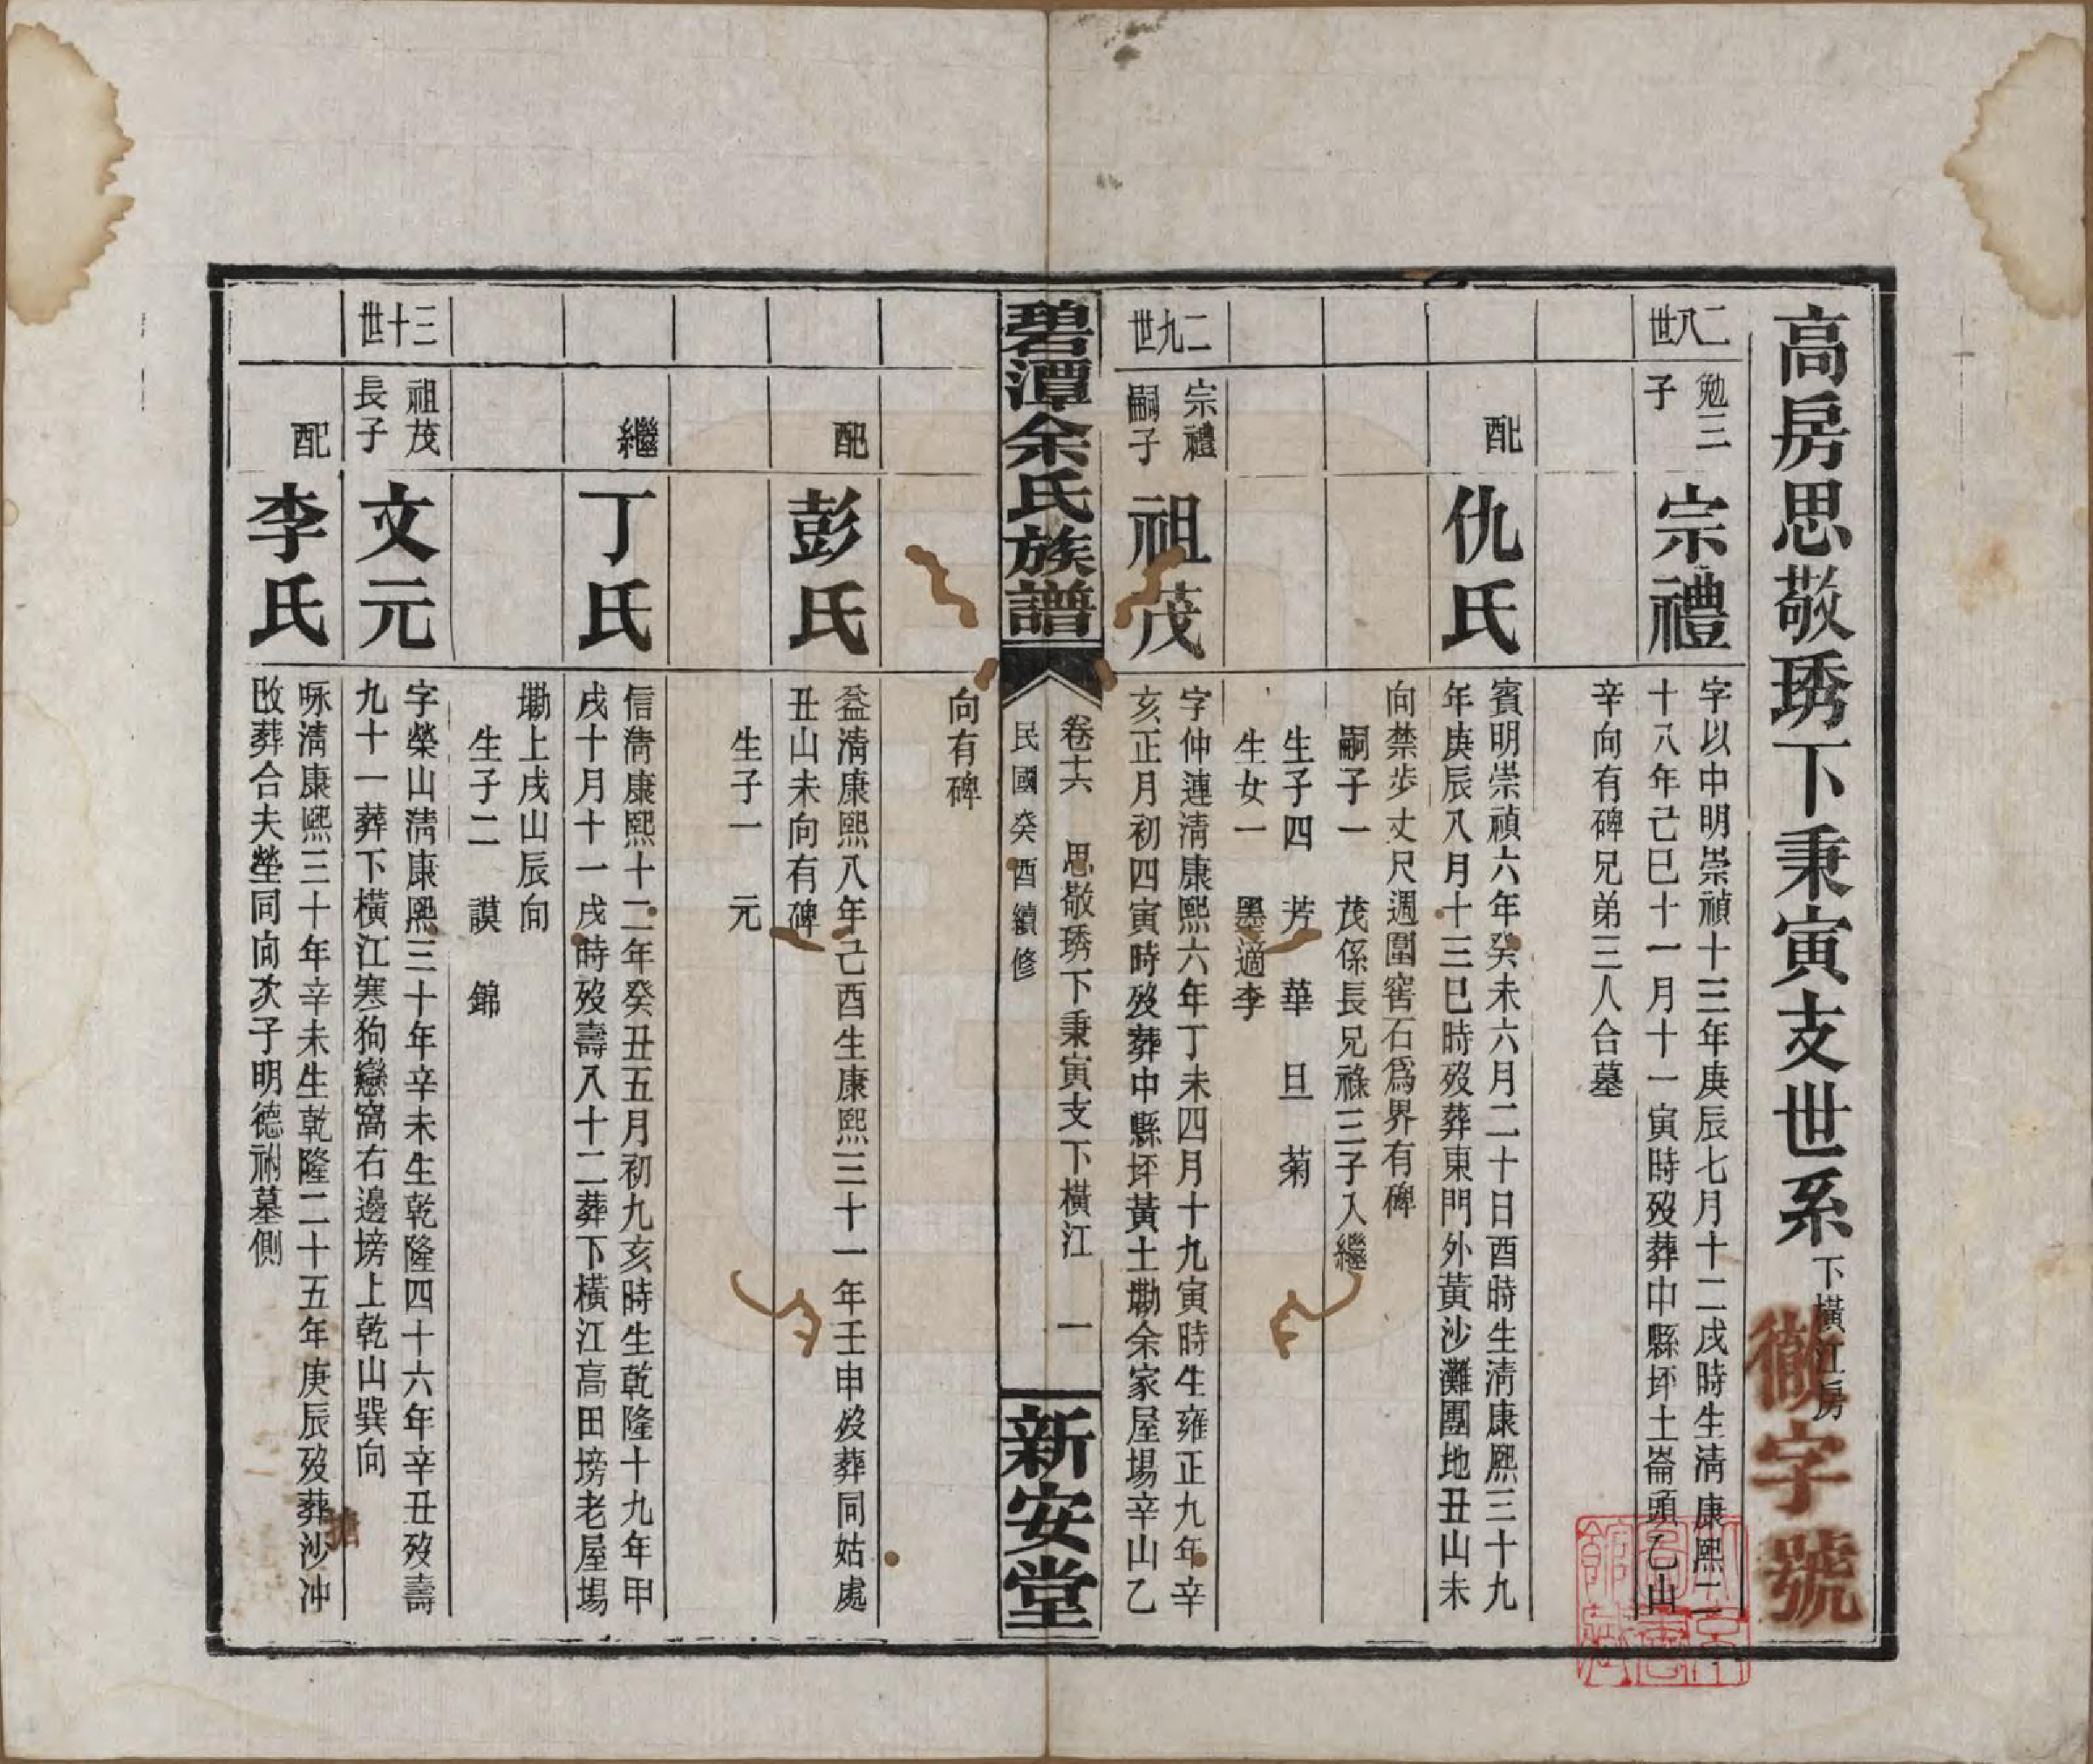 高房思敬琇下秉寅支世系 下橫江房
字號
二八世
勉三子
宗禮
字以中明崇禎十三年庚辰七月十二戌時生清康熙二
十八年己巳十一月十一寅時歿葬中縣坪土崙頭乙山
辛向有碑兄弟三人合墓
配
仇氏
賓明崇禎六年癸未六月二十日酉時生清康熙三十九
年庚辰八月十三巳時歿葬東門外黃沙灘團地丑山未
向禁步丈尺週圍窖石為界有碑
嗣子一 茂係長兄祿三子入繼
生子四 芳 華 旦 菊
生女一 墨適李
二九世
宗禮嗣子
祖茂
字仲漣清康熙六年丁未四月十九寅時生雍正九年辛
亥正月初四寅時歿葬中縣坪黃土墈余家屋場辛山乙
碧潭余氏族譜
卷六 思敬琇下秉寅支下橫江 一
民國癸酉續修
新安堂
向有碑
配
彭氏
益清康熙八年己酉生康熙三十一年壬申歿葬同姑處
丑山未向有碑
生子一 元
繼
丁氏
信清康熙十二年癸丑五月初九亥時生乾隆十九年甲
戌十月十一戌時歿壽八十二葬下橫江高田塝老屋場
墈上戌山辰向
生子二 謨 錦
三十世
祖茂長子
文元
字榮山清康熙三十年辛未生乾隆四十六年辛丑歿壽
九十一葬下橫江寒狗戀窩右邊塝上乾山巽向
配
李氏
咏清康熙三十年辛未生乾隆二十五年庚辰歿葬沙沖
改葬合夫塋同向次子明德祔墓側